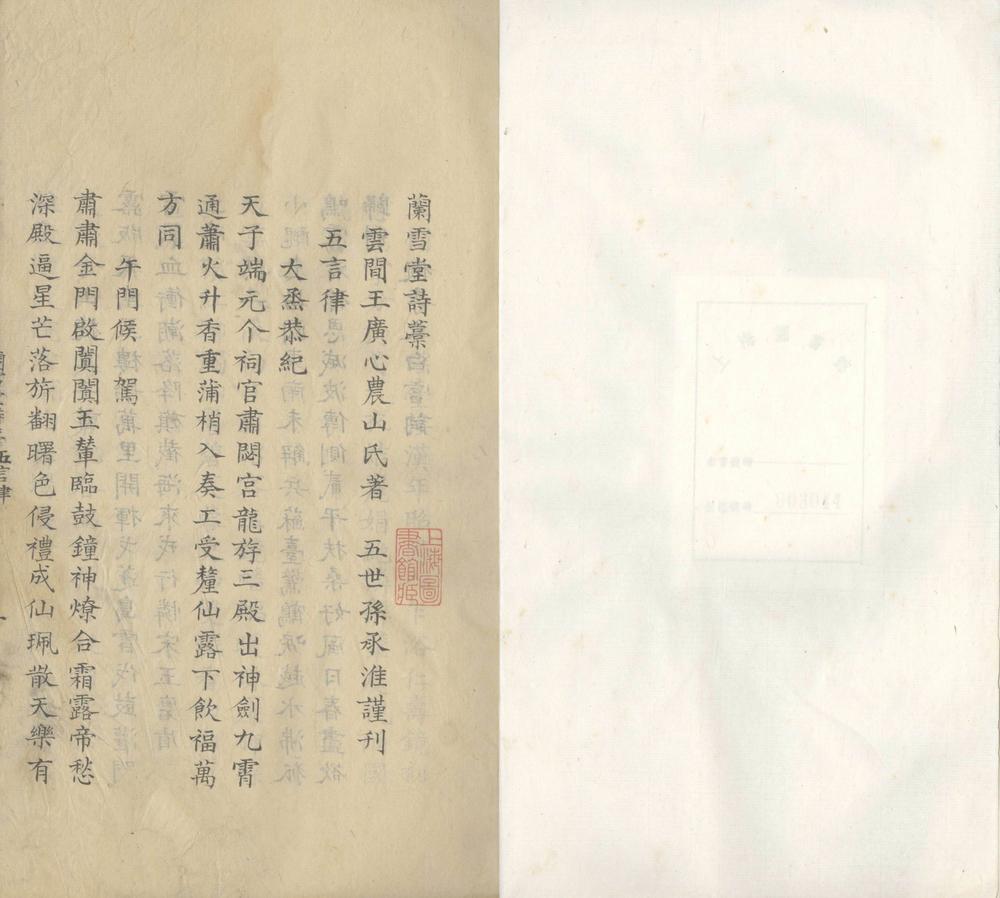 蘭雪堂詩藁
雲間王廣心農山氏著　五世孫承淮謹刊
五言律
大烝恭紀
天子端元个祠官肅閟宮龍斿三殿出神劍九霄
通蕭火升香重蒲梢入奏工受釐仙露下飲福萬
方同
午門候駕
肅肅金門啟闐闐玉輦臨鼓鐘神燎合霜露帝愁
深殿逼星芒落旂翻曙色侵禮成仙珮散天樂有
上海圖書館藏
五言律